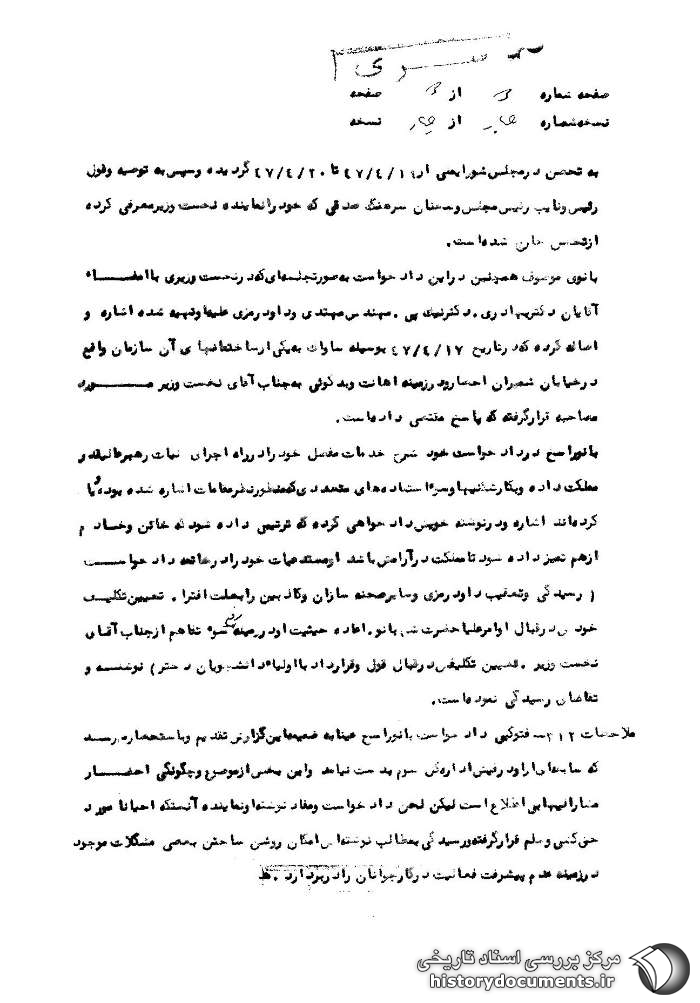 سری
صفحه شماره ۳ از ۳ صفحه
نسخه شماره چهار از چهار نسخه
به تحصن در مجلس شورایملی از ۴۷/۴/۱۹ تا ۴۷/۴/۲۰ گردیده و سپس به توصیه و قول
رئیس و نایب رئیس مجلس و سخنان سرهنگ صدقی که خود را نماینده نخست وزیر معرفی کرده
از تحصن خارج شده است.
بانوی موصوف همچنین در این دادخواست به صورتجلسه‌ای که در نخست وزیری با امضاء
آقایان دکتر بهادری، دکتر نیک پی، مهندس مهتدی و داود رمزی علیه او تهیه شده اشاره و
اضافه کرده که در تاریخ ۴۷/۴/۱۷ بوسیله ساواک به یکی از ساختمانهای آن سازمان واقع
در خیابان شمیران احضار و در زمینه اهانت و بدگوئی به جناب آقای نخست وزیر مورد
مصاحبه قرار گرفته که پاسخ مقتضی داده است.
بانو راسخ در دادخواست خود شرح خدمات مفصل خود را در راه اجرای نیات رهبر عالیقدر
مملکت داده و بکارشکنیها و سوء استفاده‌های متعددی که مقامات اشاره شده بوده و یا
کرده‌اند اشاره و در نوشته خویش دادخواهی کرده که ترتیبی داده شود که خائن و خادم
از هم تمیز داده شود تا مملکت در آرامش باشد او مستدعیات خود را در خاتمه دادخواست
( رسیدگی و تعقیب داود رمزی و سایر صحنه سازان و کاذبین را بعلت افترا، تعیین تکلیف
خودش در قبال اوامر علیاحضرت شهبانو، اعاده حیثیت او در زمینه رفع سوء تفاهم از جناب آقای
نخست وزیر، تعیین تکلیفش در قبال قول و قرارداد با اولیاء دانشجویان دختر) نوشته و
تقاضای رسیدگی نموده است.
ملاحظات ۳۱۲ـ فتوکپی دادخواست بانو راسخ عیناً به ضمیمه این گزارش تقدیم و باستحضار میرسد
که سابقه‌ای از او در بخش اداره کل سوم بدست نیامد و این بخش از موضوع و چگونگی احضار
مشارالیها بی اطلاع است لیکن لحن دادخواست و مفاد نوشته او نماینده آنستکه احیاناً مورد
حق کشی و ظلم قرار گرفته و رسیدگی به مطالب نوشته‌اش امکان روشن ساختن بعضی مشکلات موجود
در زمینه عدم پیشرفت فعالیت در کار جوانان را در بر دارد.
مرکز بررسی اسناد تاریخی
historydocuments.ir